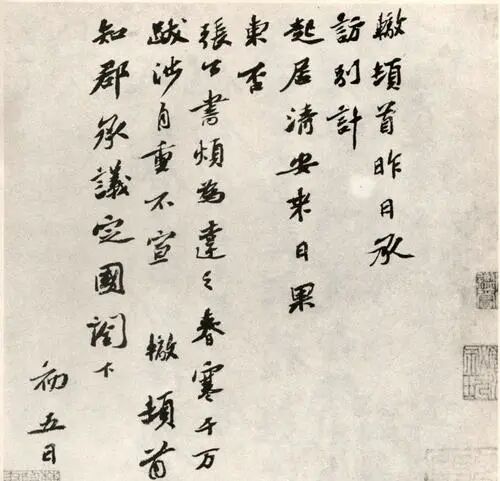 轍頓首昨日承
訪別計
起居清安来日果
東否
張公書煩為達之春寒千万
跋涉自重不宣 轍頓首
知郡承議定國閣下
初五日